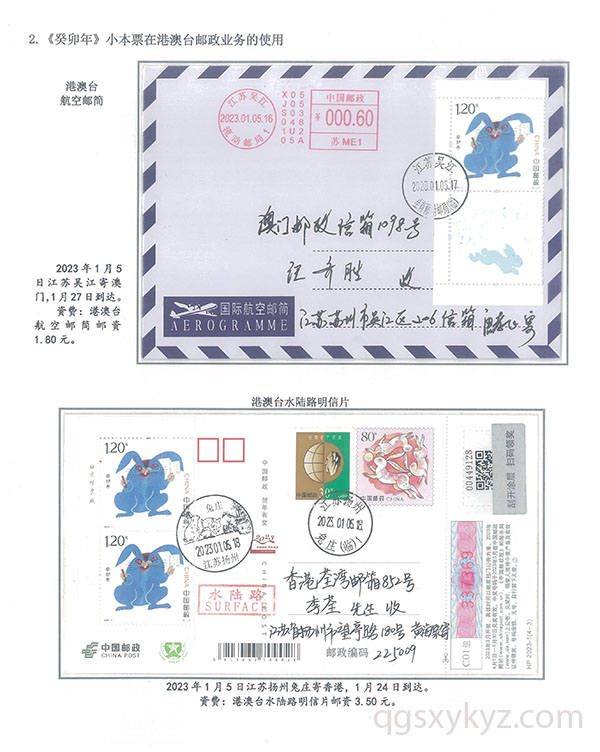 2.《癸卯年》小本票在港澳台邮政业务的使用
港澳台
航空邮简
江苏吴江
2023.01.05.16
流动邮局1
X05
J05
S03
048
1U2
05A
中国邮政
¥000.60
苏 ME1
1.20元
CHINA
中国邮政
江苏吴江
2023.01.05.17
澳门邮政信箱1098号
汪奇胜 收
2023年1月5
日江苏吴江寄澳
门,1月27日到达。
资费:港澳台
航空邮简邮资
1.80元。
国际航空邮简
AEROGRAMME
江苏苏州市吴江区2-06信箱
寄
港澳台水陆路明信片
1.20元
CHINA
中国邮政
1.20元
CHINA
中国邮政
兔庄
2023.01.05.18
江苏扬州
中国邮政 贺年有奖
CHINA POST
80分
中国邮政
80分
中国邮政 CHINA
江苏扬州
2023.01.05.18
兔庄(临)
00449128
刮开涂层 扫码领奖
水陆路
SURFACE
香港荃湾邮箱852号
李荃 先生 收
江苏省扬州市望亭路180号
邮政编码 225009
中国邮政
CHINA POST
337369
C01组
HP 2023-1(4-3)
2023年1月5日江苏扬州兔庄寄香港,1月24日到达。
资费:港澳台水陆路明信片邮资3.50元。
qgsxykyz.com